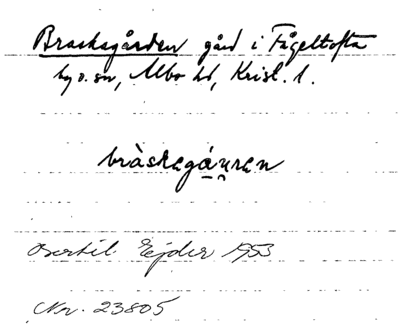 Brasksgården gård i Fågeltofta
by o. sn, Albo hd, Krist. l.
bràskagá̱u̯ren
Bertil Ejder 1953
Nr. 23805